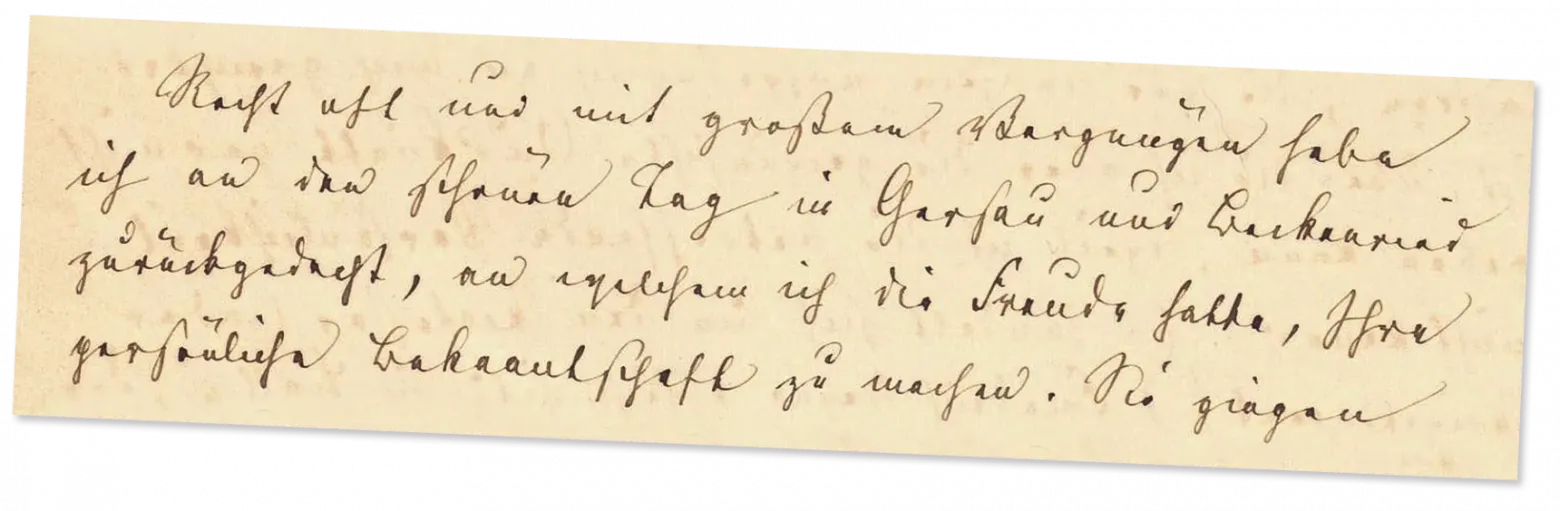 Recht oft und mit großem Vergnügen habe
ich an den schönen Tag in Gersau und Beckenried
zurückgedacht, an welchem ich die Freude hatte, Ihre
persönliche Bekanntschaft zu machen. Sie giengen